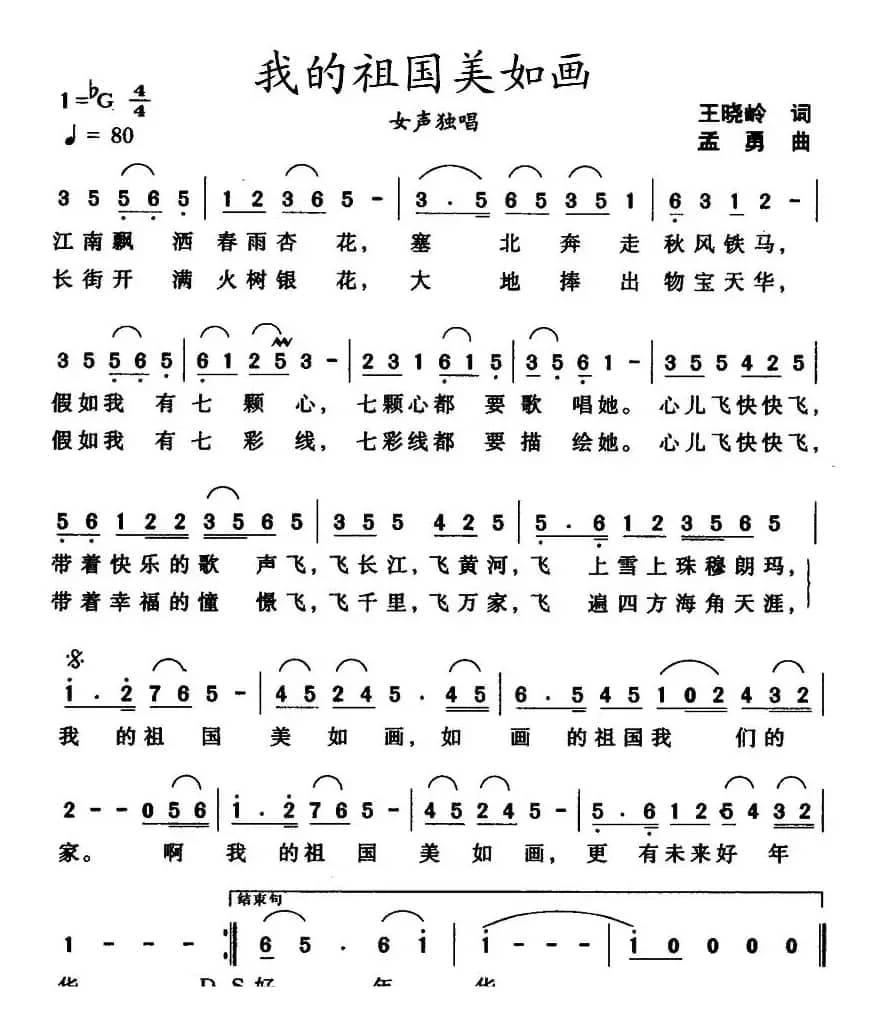 我的祖国美如画
1=♭G 4/4
女声独唱
王晓岭 词
♩= 80
孟 勇 曲
3 5 5 6 5 | 1 2 3 6 5 - | 3 . 5 6 5 3 5 1 | 6 3 1 2 - |
江南飘 洒 春雨杏 花， 塞 北 奔 走 秋风铁马，
长街开 满 火树银 花， 大 地 捧 出 物宝天华，
3 5 5 6 5 | 6 1 2 5 3 - | 2 3 1 6 1 5 | 3 5 6 1 - | 3 5 5 4 2 5 |
假如我 有 七 颗 心， 七颗心都 要 歌 唱她。 心儿飞快快飞，
假如我 有 七 彩 线， 七彩线都 要 描 绘她。 心儿飞快快飞，
5 6 1 2 2 3 5 6 5 | 3 5 5 4 2 5 | 5 . 6 1 2 3 5 6 5 |
带着快乐的歌 声飞，飞长江，飞黄河，飞 上雪上珠穆朗玛，
带着幸福的憧 憬飞，飞千里，飞万家，飞 遍四方海角天涯，
1 . 2 7 6 5 - | 4 5 2 4 5 . 4 5 | 6 . 5 4 5 1 0 2 4 3 2 |
我 的祖 国 美 如 画，如 画 的祖国我 们的
2 - - 0 5 6 | 1 . 2 7 6 5 - | 4 5 2 4 5 - | 5 . 6 1 2 5 4 3 2 |
家。 啊 我 的祖 国 美 如 画， 更 有未来好 年
结束句
1 - - - :‖ 6 5 . 6 1 | 1 - - - 1 0 0 0 0 ‖
华 D.S好 年 华